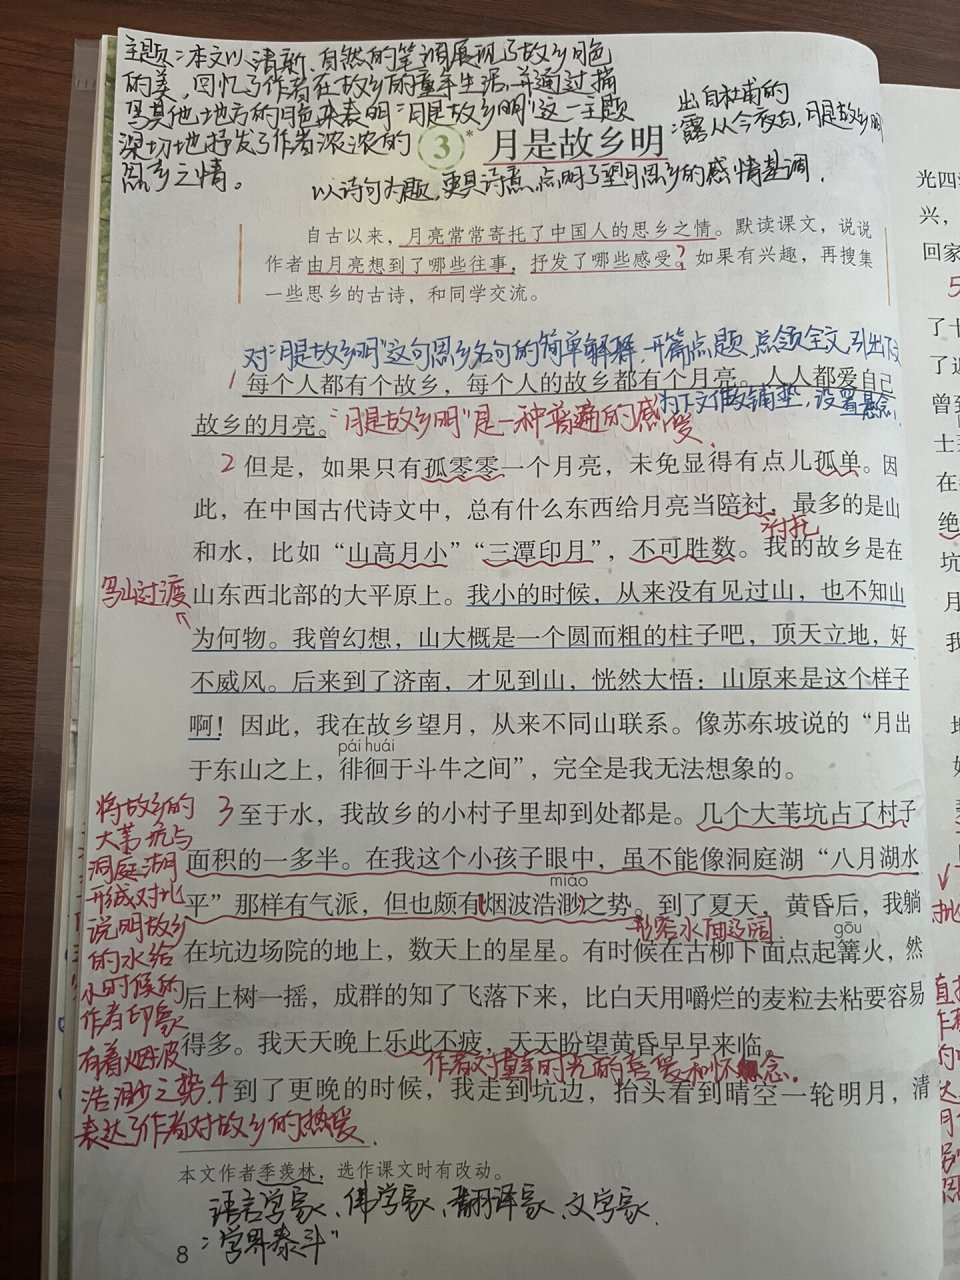 主题:本文以清新、自然的笔调展现了故乡月色
的美,回忆了作者在故乡的童年生活,并通过描
写其他地方的月色来表明“月是故乡明”这一主题
深切地抒发了作者浓浓的
思乡之情。
出自杜甫的
“露从今夜白,月是故乡明
3* 月是故乡明
以诗句为题,更具诗意,点明了望月思乡的感情基调.
自古以来,月亮常常寄托了中国人的思乡之情。默读课文,说说
作者由月亮想到了哪些往事,抒发了哪些感受?如果有兴趣,再搜集
一些思乡的古诗,和同学交流。
对“月是故乡明”这句思乡名句的简单解释,开篇点题,总领全文,引出下文
1 每个人都有个故乡,每个人的故乡都有个月亮。人人都爱自己
为下文做铺垫,设置悬念.
故乡的月亮。“月是故乡明”是一种普遍的感受.
2 但是,如果只有孤零零一个月亮,未免显得有点儿孤单。因
此,在中国古代诗文中,总有什么东西给月亮当陪衬,最多的是山
衬托
和水,比如“山高月小”“三潭印月”,不可胜数。我的故乡是在
写山过渡
山东西北部的大平原上。我小的时候,从来没有见过山,也不知山
为何物。我曾幻想,山大概是一个圆而粗的柱子吧,顶天立地,好
不威风。后来到了济南,才见到山,恍然大悟:山原来是这个样子
啊!因此,我在故乡望月,从来不同山联系。像苏东坡说的“月出
pái huái
于东山之上,徘徊于斗牛之间”,完全是我无法想象的。
3 至于水,我故乡的小村子里却到处都是。几个大苇坑占了村子
面积的一多半。在我这个小孩子眼中,虽不能像洞庭湖“八月湖水
miǎo
平”那样有气派,但也颇有烟波浩渺之势。到了夏天,黄昏后,我躺
形容水面辽阔
gōu
在坑边场院的地上,数天上的星星。有时候在古柳下面点起篝火,然
后上树一摇,成群的知了飞落下来,比白天用嚼烂的麦粒去粘要容易
得多。我天天晚上乐此不疲,天天盼望黄昏早早来临。
作者对童年时光的喜爱和怀念.
4 到了更晚的时候,我走到坑边,抬头看到晴空一轮明月,清
将故乡的
大苇坑与
洞庭湖
形成对比
说明故乡
的水给
小时候的
作者印象
有着烟波
浩渺之势
表达了作者对故乡的热爱.
本文作者季羡林,选作课文时有改动。
语言学家、佛学家、翻译家、文学家.
“学界泰斗”
8
光四
兴,
回家
5
了十
了近
曾到
士
在
绝
坑
月
我